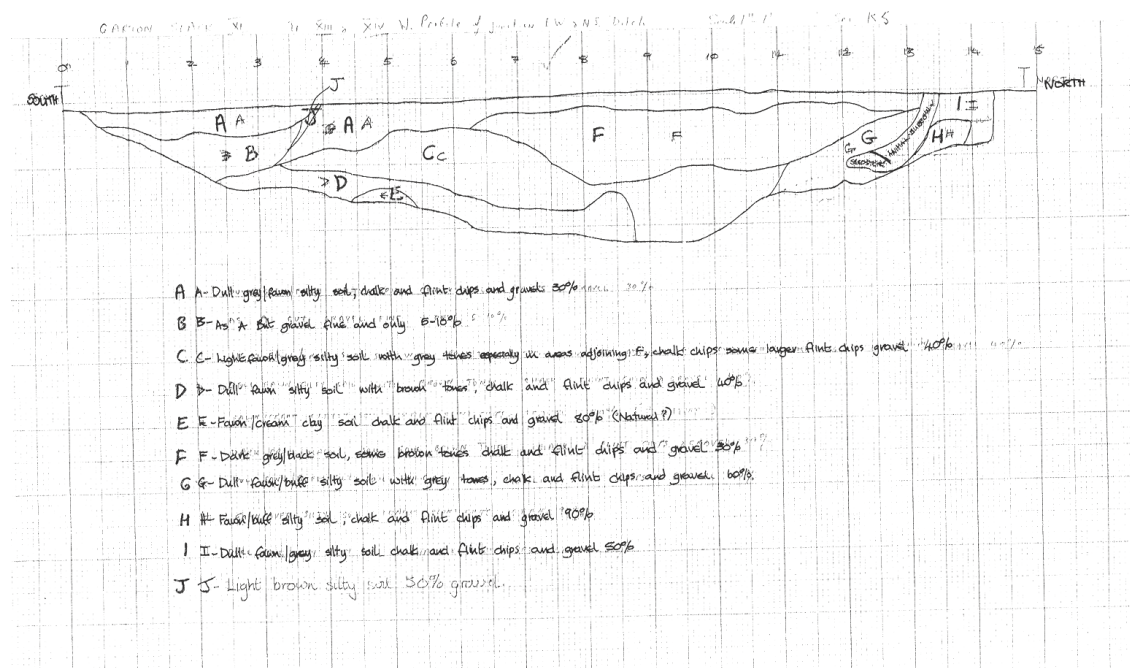 XIII & XIV W. Profile of junction EW & NS Ditch K5
0 1 2 3 4 5 6 7 8 9 10 11 12 13 14 15
J
SOUTH NORTH
A A A A F F G I I
B C C H H
D
E
A A- Dull grey/fawn silty soil, chalk and flint chips and gravel 30%
B B- As A But gravel fine and only 5-10%
C C- Light fawn/grey silty soil with grey tones especially in areas adjoining F, chalk chips some larger flint chips gravel 40%
D D- Dull fawn silty soil with brown tones, chalk and flint chips and gravel 40%
E E- Fawn/cream clay soil chalk and flint chips and gravel 80% (Natural?)
F F- Dark grey/black soil, some brown tones chalk and flint chips and gravel 30%
G G- Dull fawn/buff silty soil with grey tones, chalk and flint chips and gravel 60%.
H H- Fawn/buff silty soil, chalk and flint chips and gravel 90%
I I- Dull fawn/grey silty soil chalk and flint chips and gravel 50%
J J- Light brown silty soil 30% gravel.